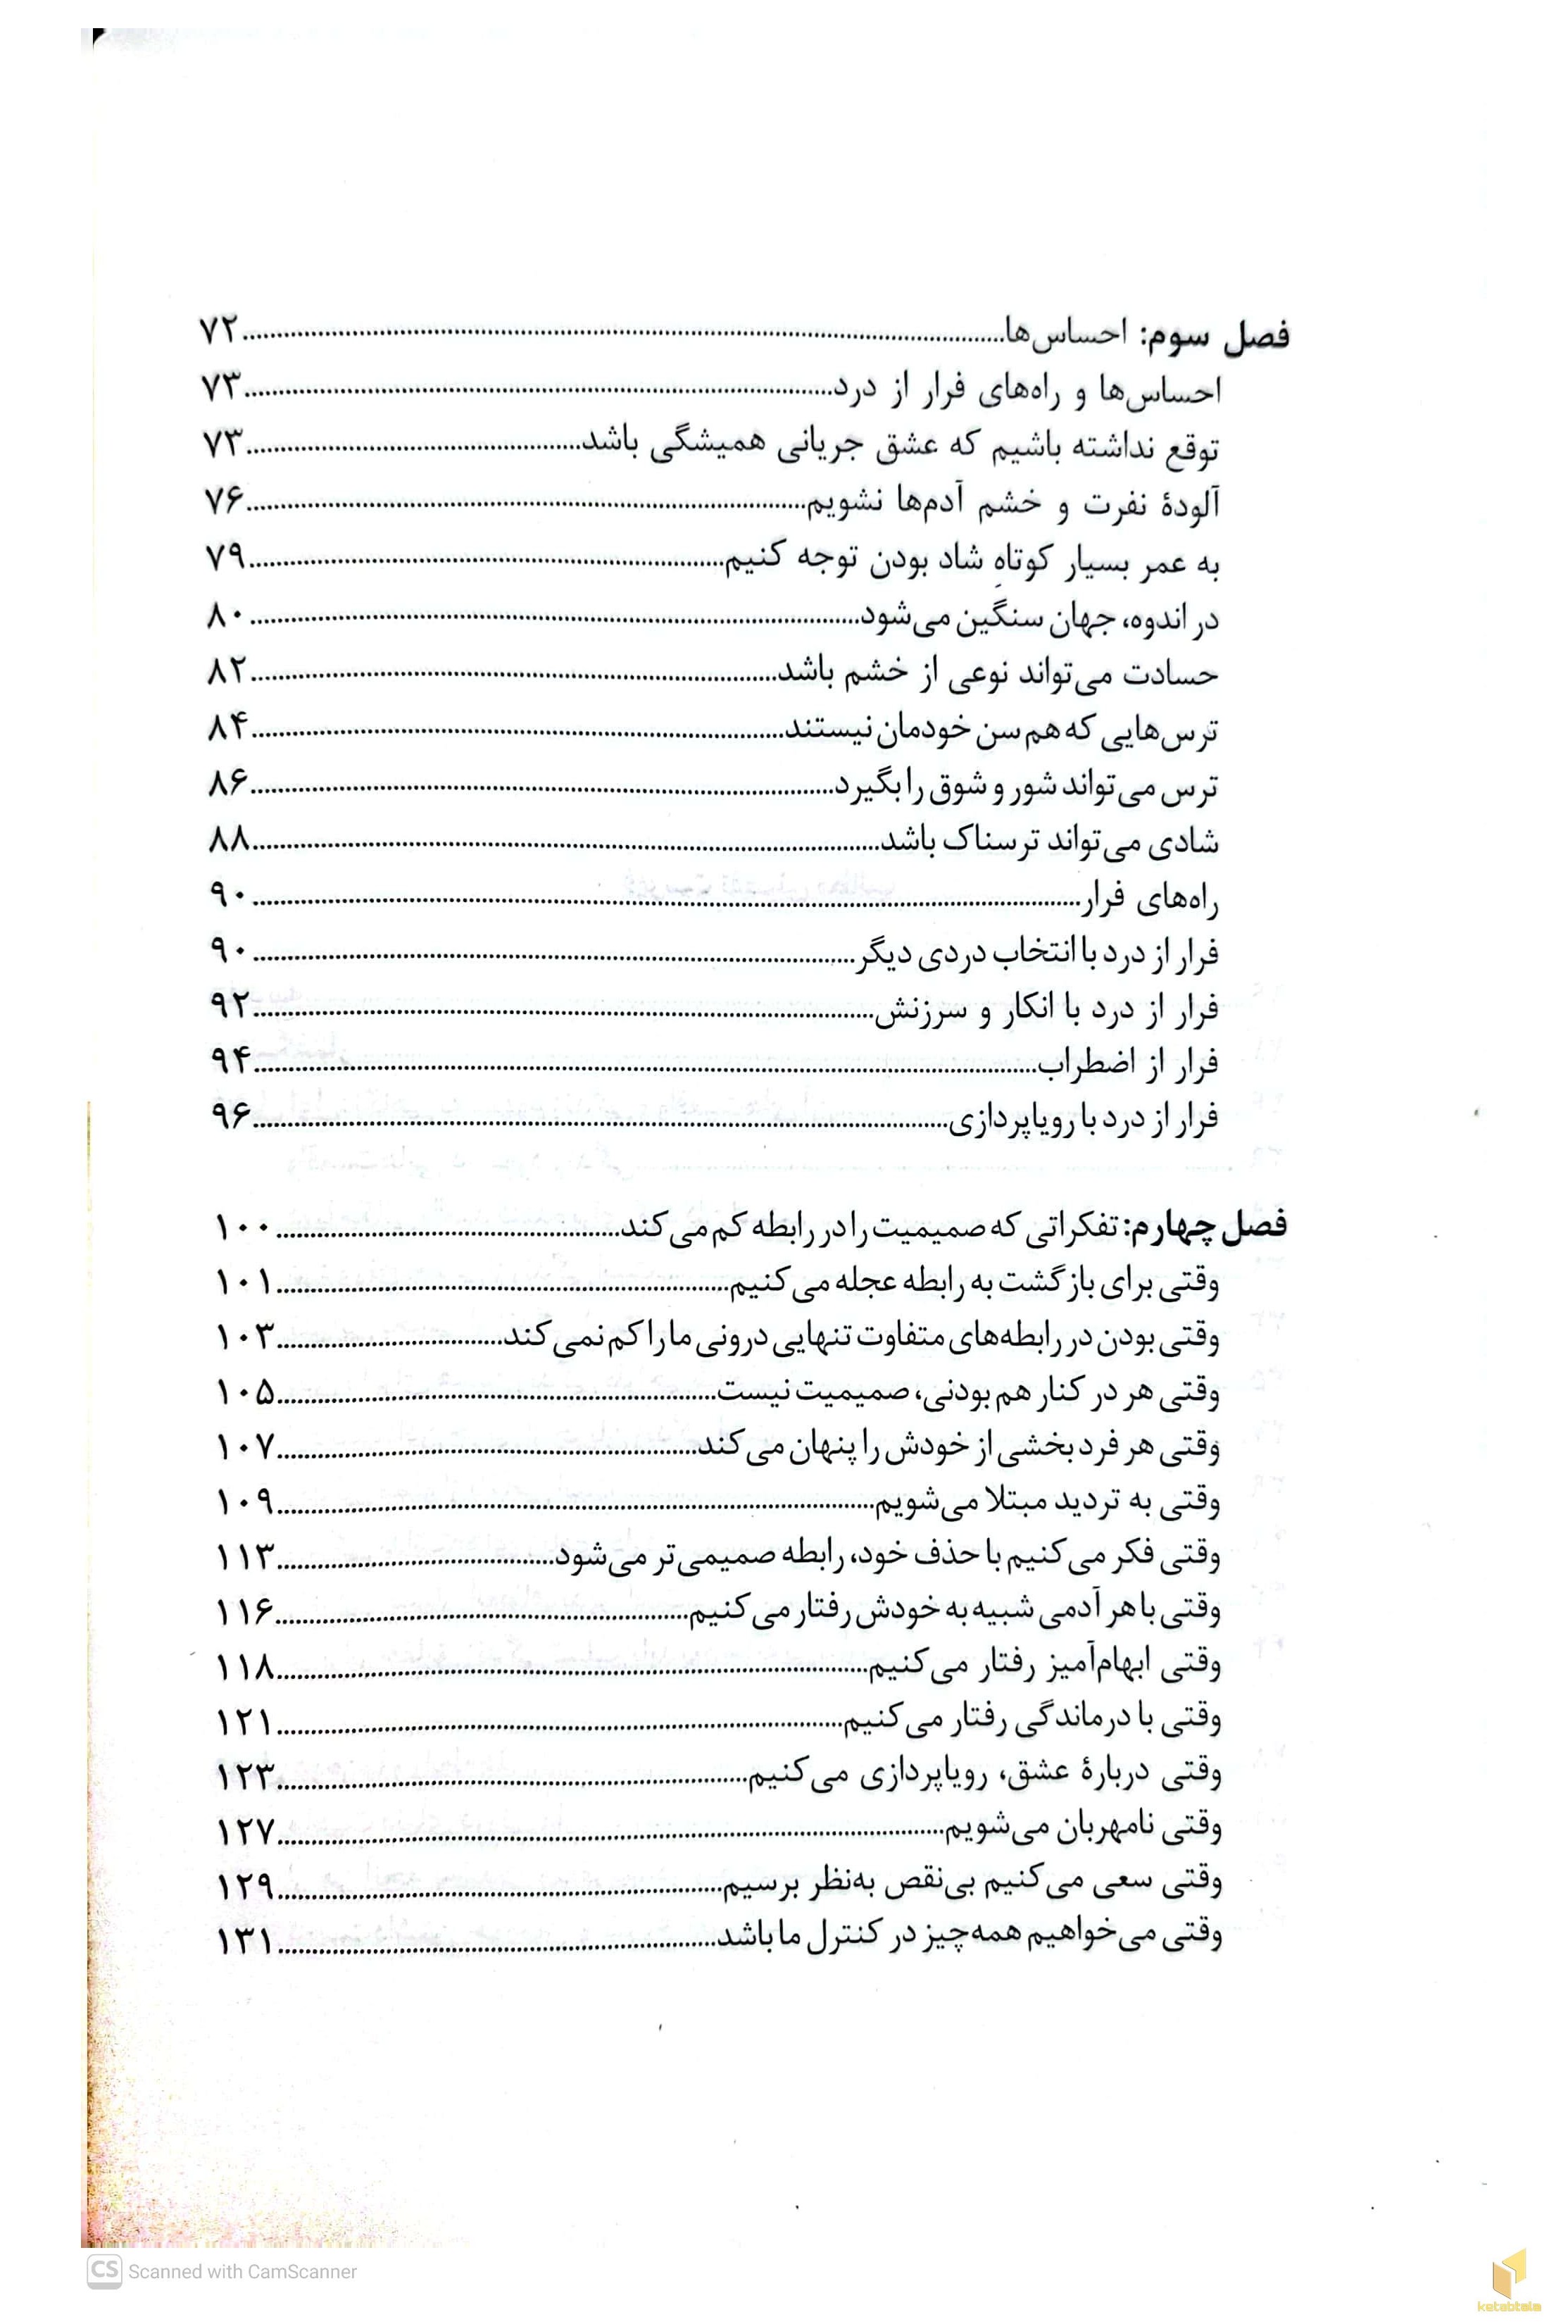 فصل سوم: احساس‌ها........................................۷۲
احساس‌ها و راه‌های فرار از درد........................................۷۳
توقع نداشته باشیم که عشق جریانی همیشگی باشد........................................۷۳
آلودهٔ نفرت و خشم آدم‌ها نشویم........................................۷۶
به عمر بسیار کوتاه شاد بودن توجه کنیم........................................۷۹
در اندوه، جهان سنگین می‌شود........................................۸۰
حسادت می‌تواند نوعی از خشم باشد........................................۸۲
ترس‌هایی که هم سن خودمان نیستند........................................۸۴
ترس می‌تواند شور و شوق را بگیرد........................................۸۶
شادی می‌تواند ترسناک باشد........................................۸۸
راه‌های فرار........................................۹۰
فرار از درد با انتخاب دردی دیگر........................................۹۰
فرار از درد با انکار و سرزنش........................................۹۲
فرار از اضطراب........................................۹۴
فرار از درد با رویاپردازی........................................۹۶
فصل چهارم: تفکراتی که صمیمیت را در رابطه کم می‌کند........................................۱۰۰
وقتی برای بازگشت به رابطه عجله می‌کنیم........................................۱۰۱
وقتی بودن در رابطه‌های متفاوت تنهایی درونی ما را کم نمی‌کند........................................۱۰۳
وقتی هر در کنار هم بودنی، صمیمیت نیست........................................۱۰۵
وقتی هر فرد بخشی از خودش را پنهان می‌کند........................................۱۰۷
وقتی به تردید مبتلا می‌شویم........................................۱۰۹
وقتی فکر می‌کنیم با حذف خود، رابطه صمیمی‌تر می‌شود........................................۱۱۳
وقتی با هر آدمی شبیه به خودش رفتار می‌کنیم........................................۱۱۶
وقتی ابهام‌آمیز رفتار می‌کنیم........................................۱۱۸
وقتی با درماندگی رفتار می‌کنیم........................................۱۲۱
وقتی دربارهٔ عشق، رویاپردازی می‌کنیم........................................۱۲۳
وقتی نامهربان می‌شویم........................................۱۲۷
وقتی سعی می‌کنیم بی‌نقص به‌نظر برسیم........................................۱۲۹
وقتی می‌خواهیم همه‌چیز در کنترل ما باشد........................................۱۳۱
CS Scanned with CamScanner
ketabtala